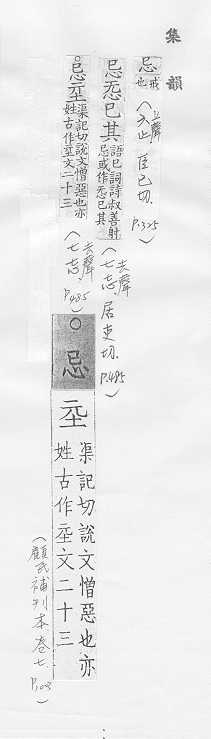 集韻
忌 戒也
(上聲 六止 巨己切. p.325)
忌忎己其 語已詞詩叔善射
忌或作忎己其
(去聲 七志 居吏切. p.485)
○忌𢀳 渠記切說文憎惡也亦
姓古作𢀳文二十三
(去聲 七志 p.485)
○忌
𢀳
渠記切說文憎惡也亦
姓古作𢀳文二十三
(顧氏補刊本卷七